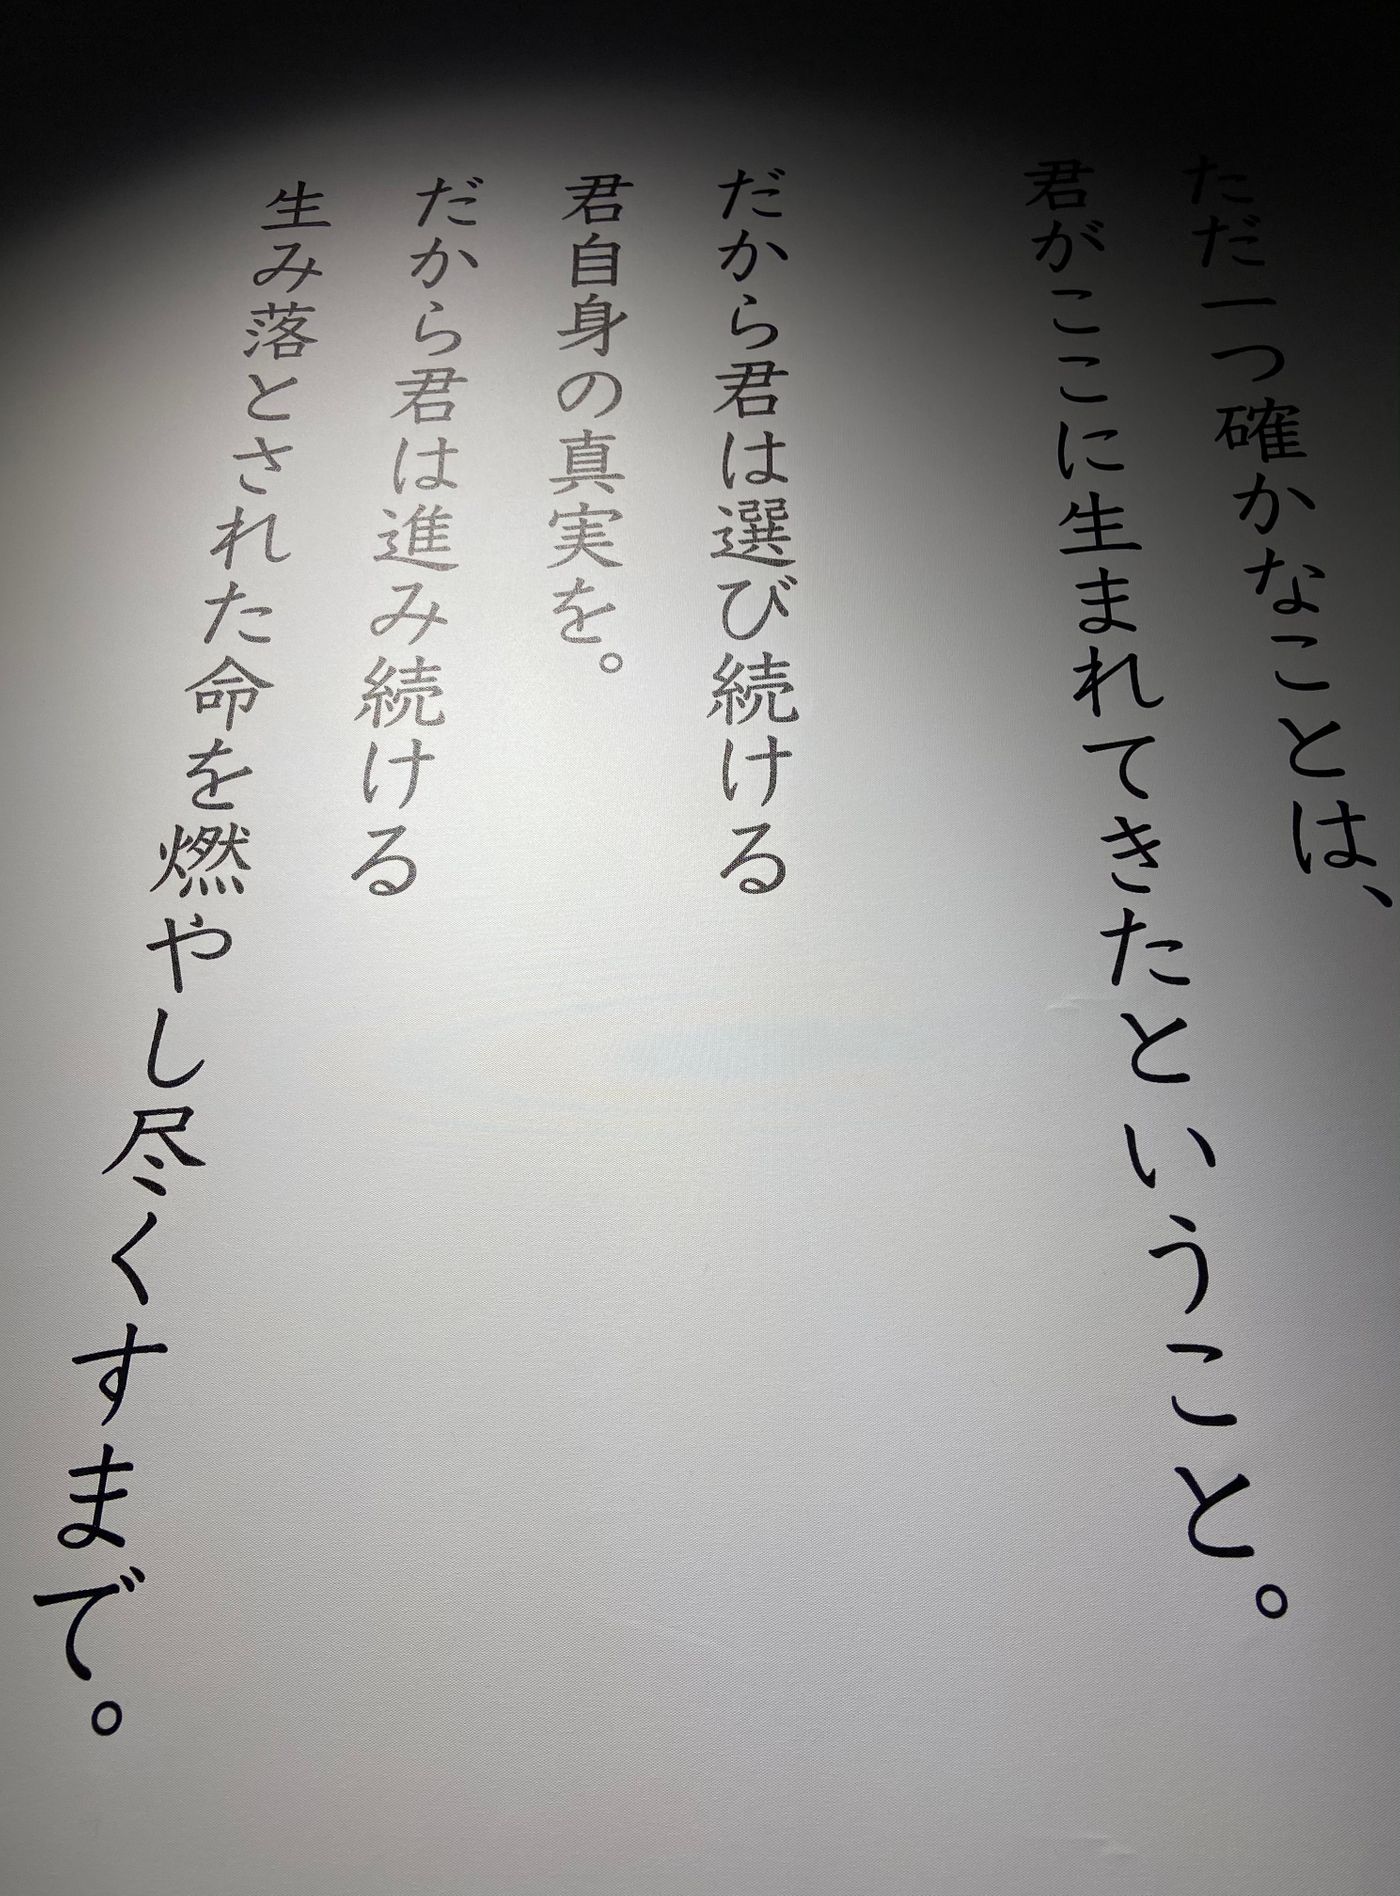 ただ一つ確かなことは、
君がここに生まれてきたということ。
だから君は選び続ける
君自身の真実を。
だから君は進み続ける
生み落とされた命を燃やし尽くすまで。